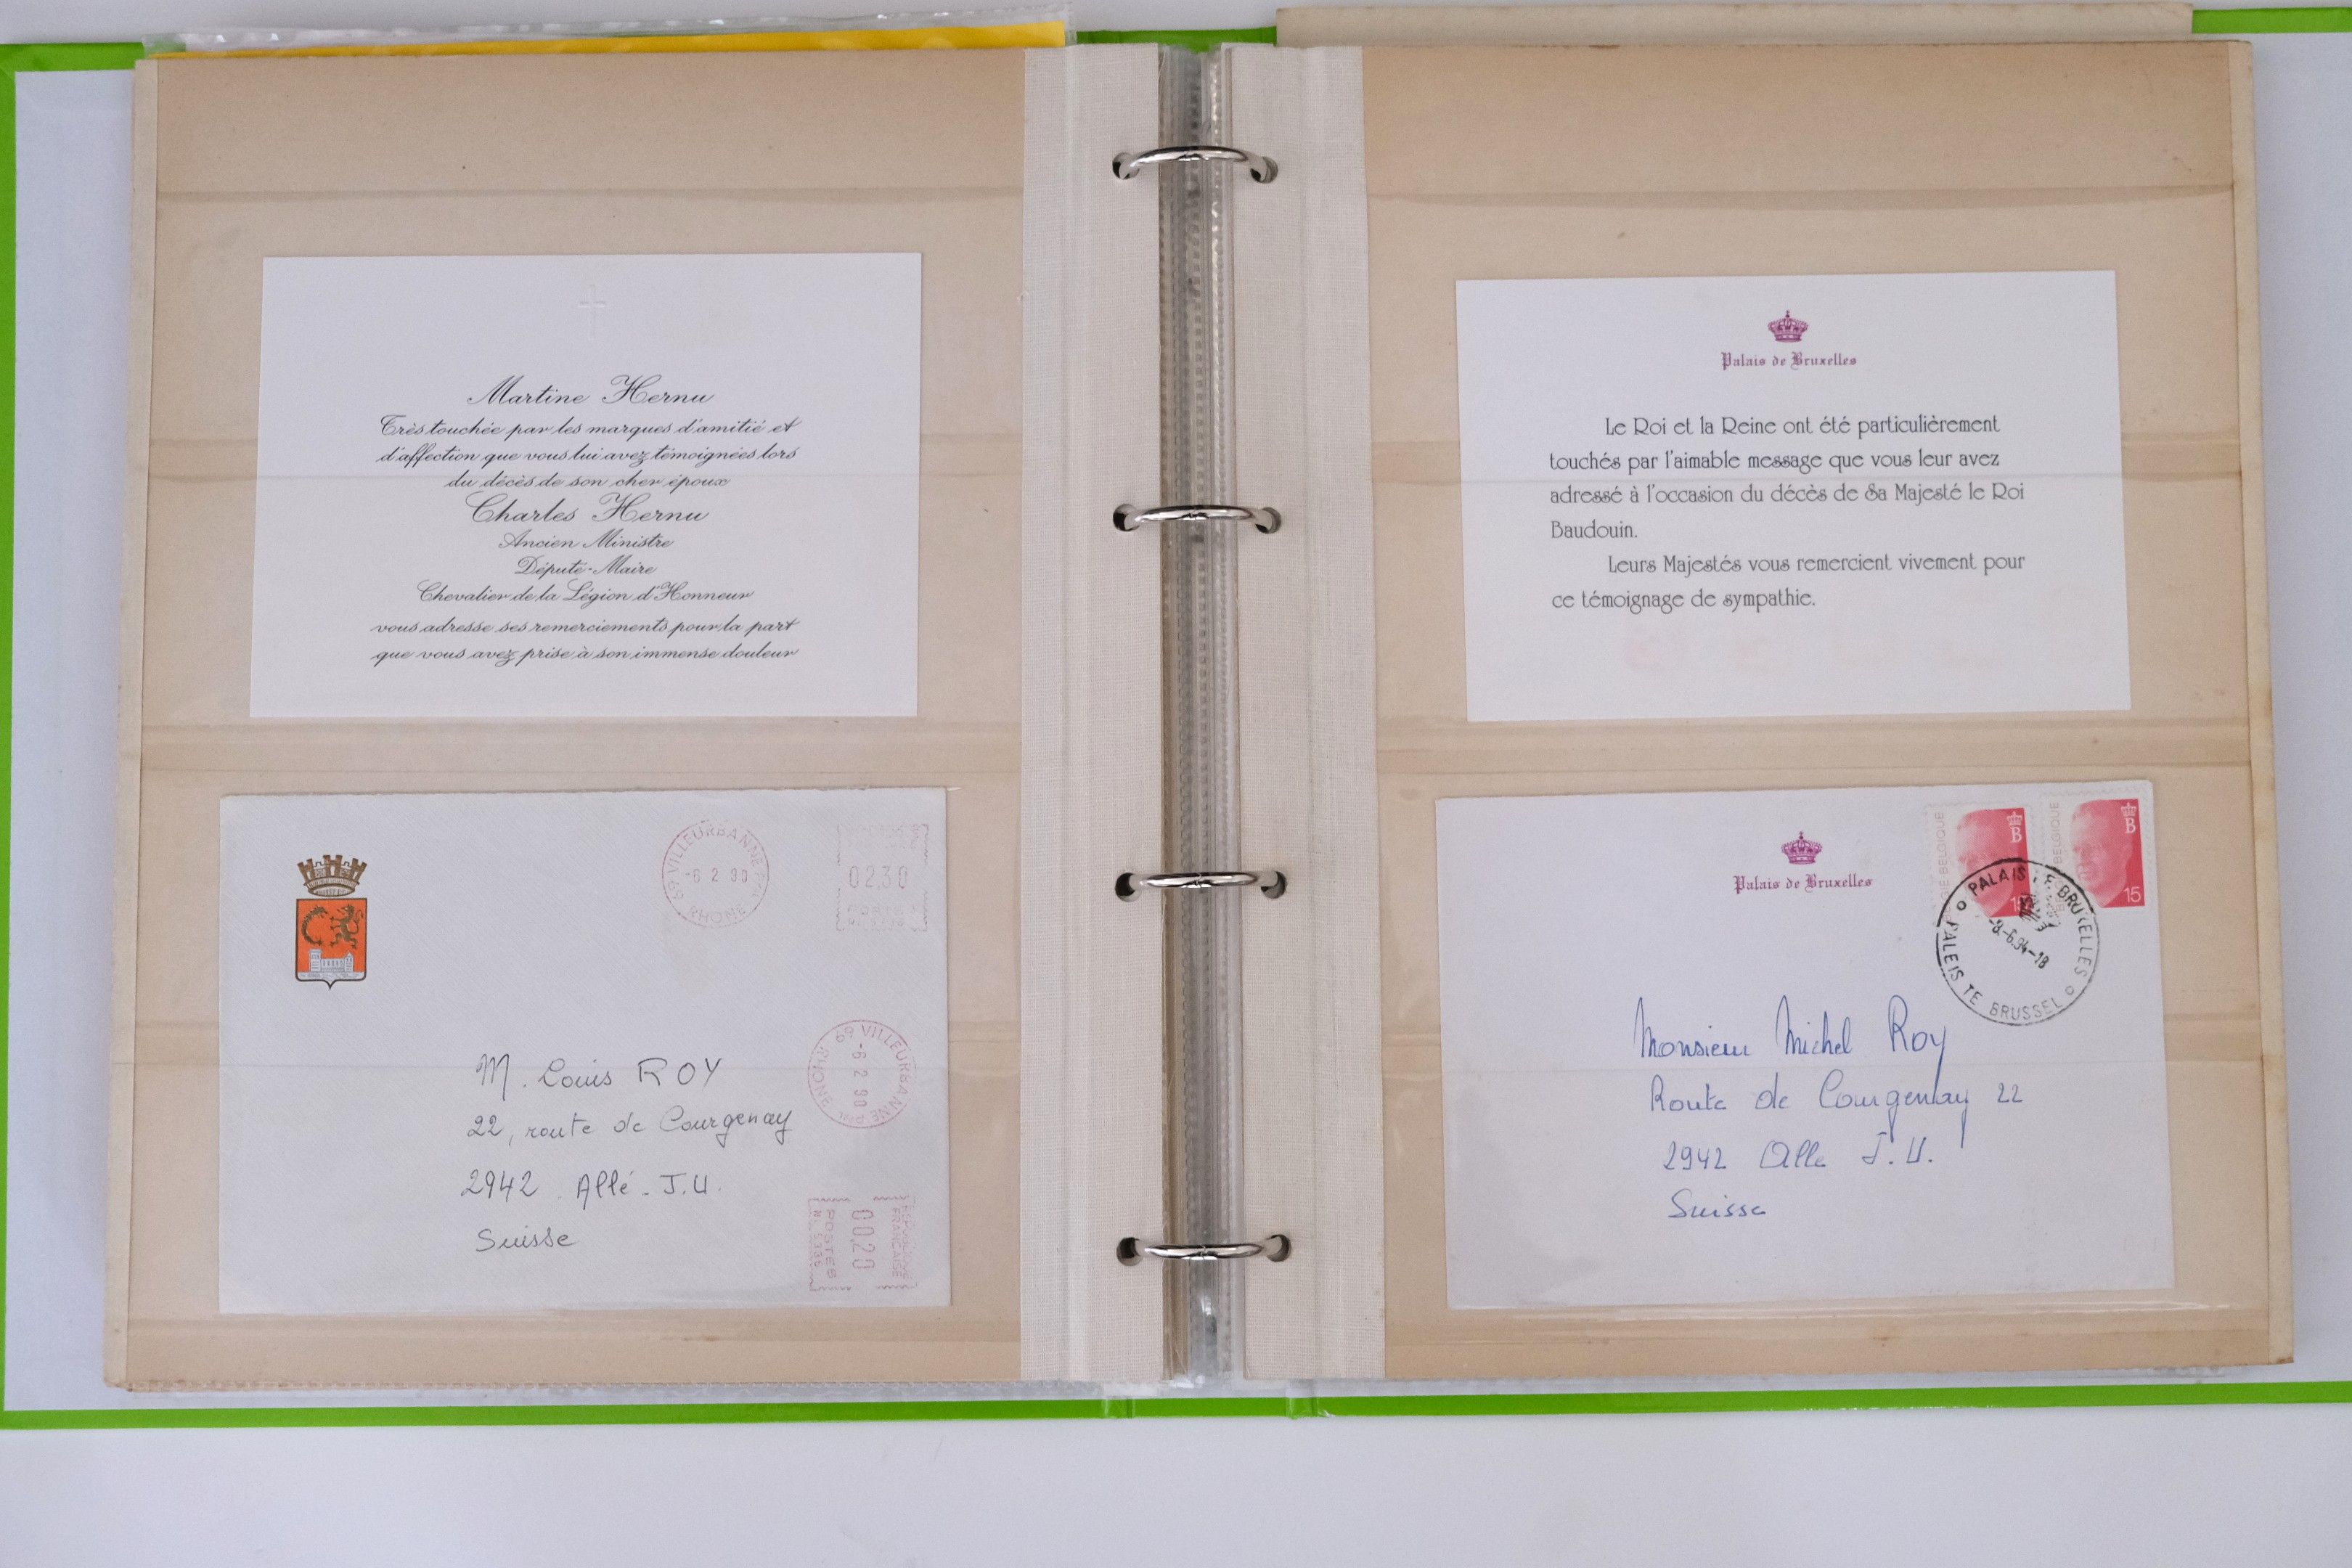 Martine Hernu
Très touchée par les marques d'amitié et
d'affection que vous lui avez témoignées lors
du décès de son cher époux
Charles Hernu
Ancien Ministre
Député-Maire
Chevalier de la Légion d'Honneur
vous adresse ses remerciements pour la part
que vous avez prise à son immense douleur
69 VILLEURBANNE
-6 2 90
RHONE
02,30
POSTES
69 VILLEURBANNE
-6 2 90
RHONE
REPUBLIQUE
FRANCAISE
00,20
POSTES
M. Louis ROY
22, route de Courgenay
2942 Allé - J.U.
Suisse
Palais de Bruxelles
Le Roi et la Reine ont été particulièrement
touchés par l'aimable message que vous leur avez
adressé à l'occasion du décès de Sa Majesté le Roi
Baudouin.
Leurs Majestés vous remercient vivement pour
ce témoignage de sympathie.
Palais de Bruxelles
BELGIQUE
B
BELGIQUE
B
15
PALAIS DE BRUXELLES
-8.-6.94-18
PALEIS TE BRUSSEL
Monsieur Michel Roy
Route de Courgenay 22
2942 Alle J.U.
Suisse